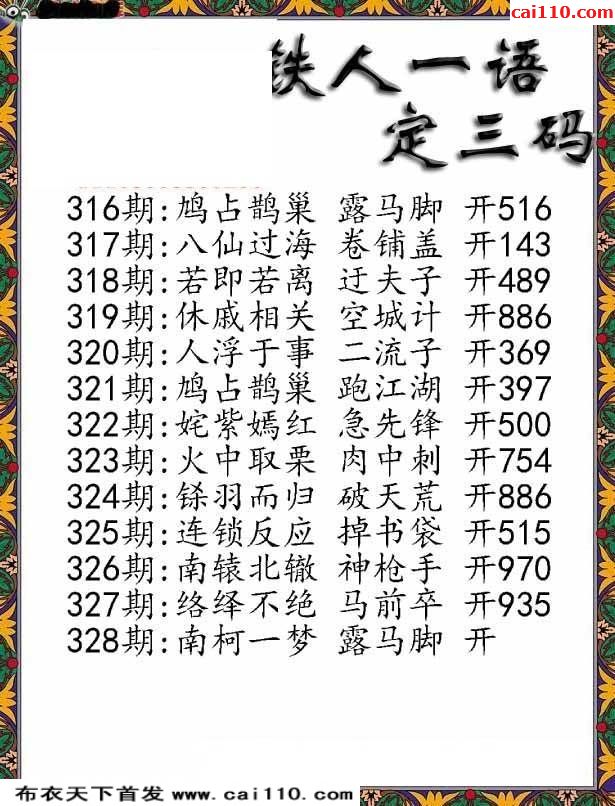 cai110.com
铁人一语
定三码
316期:鸠占鹊巢 露马脚 开516
317期:八仙过海 卷铺盖 开143
318期:若即若离 迂夫子 开489
319期:休戚相关 空城计 开886
320期:人浮于事 二流子 开369
321期:鸠占鹊巢 跑江湖 开397
322期:姹紫嫣红 急先锋 开500
323期:火中取栗 肉中刺 开754
324期:铩羽而归 破天荒 开886
325期:连锁反应 掉书袋 开515
326期:南辕北辙 神枪手 开970
327期:络绎不绝 马前卒 开935
328期:南柯一梦 露马脚 开
布衣天下首发 www.cai110.com